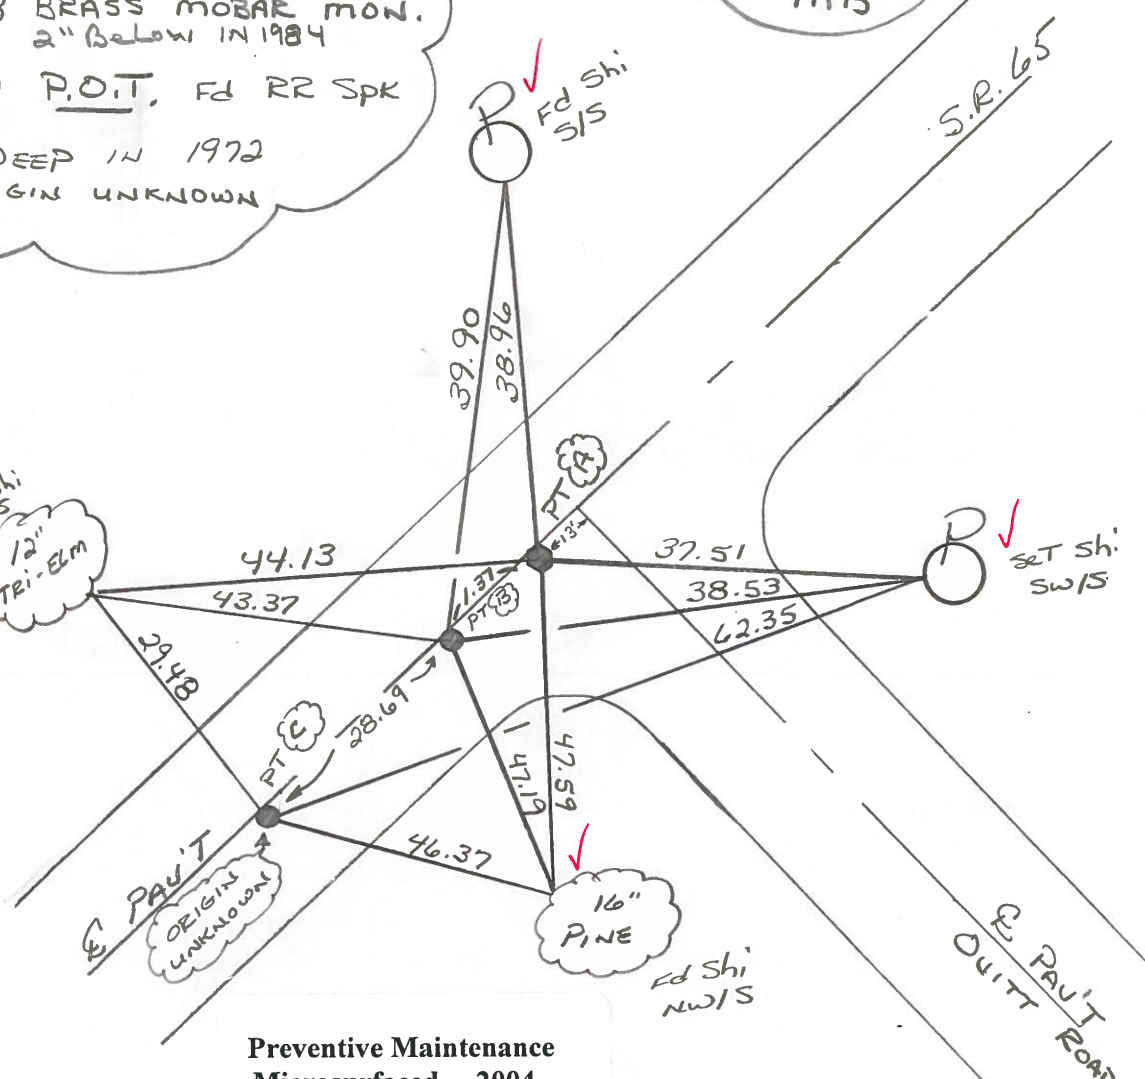 BRASS MOBAR MON.
2" Below IN 1984
P.O.T. Fd RR Spk
DEEP IN 1972
GIN UNKNOWN
P
Fd Shi
S/S
S.R. 65
39.90
38.96
PT A
13'
12"
TRI-ELM
44.13
43.37
29.48
1.37
PT B
37.51
38.53
62.35
P
SeT Shi
SW/S
28.69
PT C
47.19
47.59
46.37
℄ PAV'T
ORIGIN
UNKNOWN
16"
PINE
Fd Shi
NW/S
℄ PAV'T
OUITT ROAD
Preventive Maintenance
Microsurfaced 2004